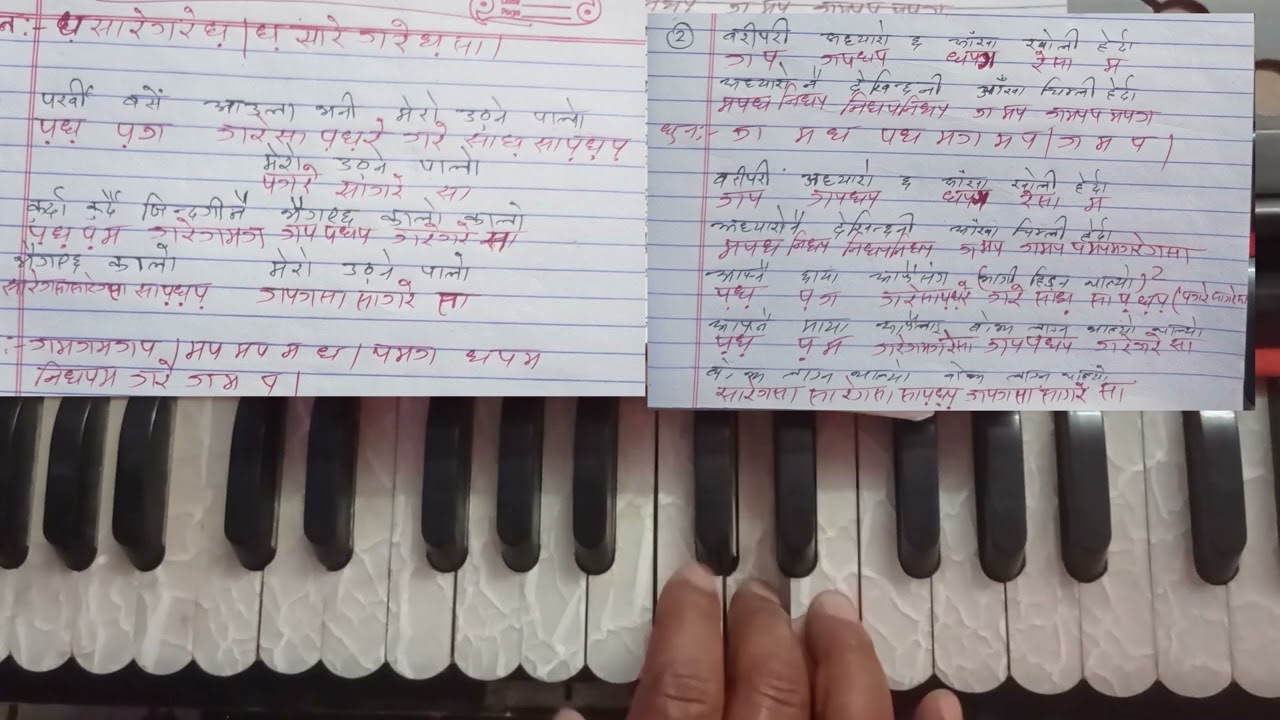 Date
Page
न:- ध़ सारेगरेध़ | ध़ सारे गरेध़ सा |
पर्खी बसें आउला भनी मेरो उठ्ने पालो
प़ध़ प़ग गरेसापध़रे गरे साध़ साप़ध़प़
मेरो उठ्ने पालो
पगरे सागरे सा
कुर्दा कुर्दै जिन्दगीनै भैगएछ कालो कालो
प़ध़ प़म गरेगमग गपपधप गरेगरे सा
भैगएछ कालो मेरो उठ्ने पालो
सारेगसासारेगसा साप़ध़प़ गपगसा सागरे सा
:- गमगमगप | मप मप म ध | पमग धपम
निधपम गरे गम प |
② वरीपरी अध्यारो छ आँखा खोली हेर्दा
गप गपधप धपम रेसा म
अध्यारो नै देखिन्दनी आँखा चिम्ली हेर्दा
मपध निधप निधपनिधप गमप गमपप मपग
धुन:- ग म ध पध मग म प | ग म प |
वरीपरी अध्यारो छ आँखा खोली हेर्दा
गप गपधप धपम रेसा म
अध्यारोनै देखिन्दनी आँखा चिम्ली हेर्दा
मपध निधप निधपनिधप गमप गमपप मपमगरेगसा
आफ्नै छाया आफैसंग भागी हिड्न थाल्यो) 2
प़ध़ प़ग गरेसापध़रे गरे साध़ साप़ध़प़ (पगरेसागरेसा
माया लाग्न थाल्यो थाल्यो
प़ध़ प़म गरेगमगरेसा गपपधप गरेगरे सा
लाग्न थाल्यो लाग्न थाल्यो
सारेगसा सारेगसा साप़ध़प़ गपगसा सागरे सा |